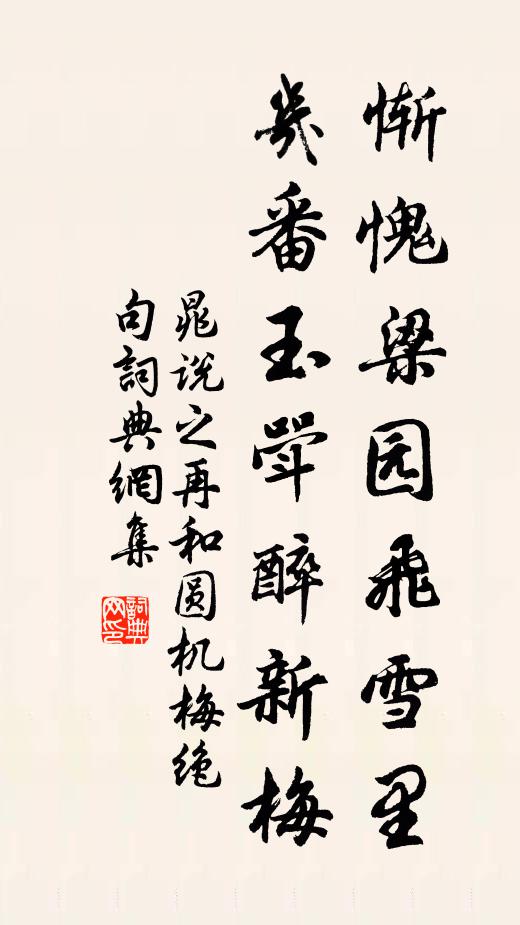 惭愧梁园飞雪里
几番玉斝醉新梅
晁说之再和圆机梅绝
句詞典網集
詞典
网印